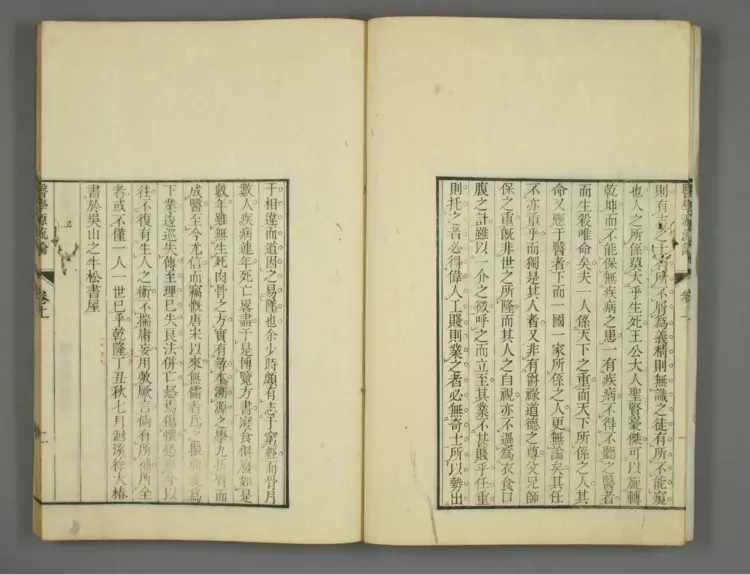 則有志之士有所不屑爲義精則無識之徒有所不能窺
也人之所係莫大乎生死王公大人聖賢豪傑可以旋轉
乾坤而不能保無疾病之患一有疾病不得不聽之醫者
而生殺唯命矣夫一人係天下之重而天下所係之人其
命又懸于醫者下而一國一家所係之人更無論矣其任
不亦重乎而獨是其人者又非有爵祿道德之尊父兄師
保之重既非世之所隆而其人之自視亦不過爲衣食口
腹之計雖以一介之微呼之而立至其業不甚賤乎任重
則托之者必得偉人工賤則業之者必無奇士所以勢出
于相違而道因之易墜也余少時頗有志于窮經而骨月
數人疾病連年死亡畧盡于是博覽方書寢食俱廢如是
數年雖無生死肉骨之方實有尋本溯源之學九折臂而
成醫至今尤信而竊慨唐宋以來無儒者爲之振興視爲
下業逡巡失傳至理已失良法併亡惄焉傷懷恐自今以
往不復有生人之術不揣庸妄用敷厥言倘有所補所全
者或不僅一人一世已乎乾隆丁丑秋七月洄溪徐大椿
書於吳山之半松書屋
醫學源流論
卷上